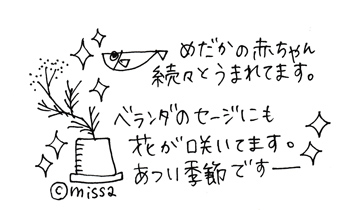 めだかの赤ちゃん
続々とうまれてます。
ベランダのセージにも
花が咲いてます。
あつい季節ですー
©missa